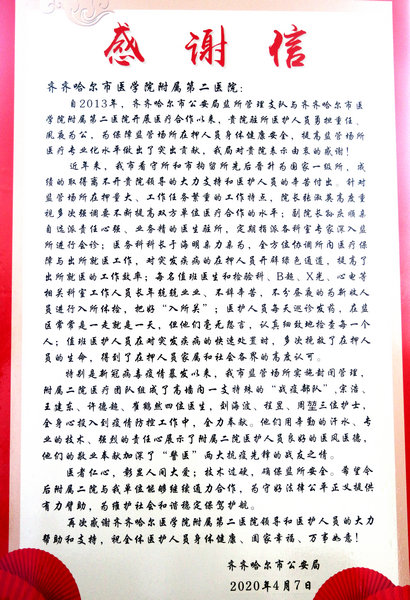 感谢信
齐齐哈尔市医学院附属第二医院：
自2013年，齐齐哈尔市公安局监所管理支队与齐齐哈尔市医
学院附属第二医院开展医疗合作以来，贵院驻所医护人员勇担重任、
夙夜为公，为保障监管场所在押人员身体健康安全，提高监管场所
医疗专业化水平做出了突出贡献，我局对贵院表示由衷的感谢！
近年来，我市看守所和市拘留所先后晋升为国家一级所，成
绩的取得离不开贵院领导的大力支持和医护人员的辛苦付出。针对
监管场所在押量大、工作任务繁重的工作特点，院长张淑英高度重
视多次强调要不断提高双方单位医疗合作的水平；副院长孙庆顺亲
自选派责任心强、业务精的医生驻所，定期指派各科室专家深入监
所进行会诊；医务科科长于海明亲力亲为，全方位协调所内医疗保
障与出所就医工作，对突发疾病的在押人员开辟绿色通道，提高了
出所就医的工作效率；每名值班医生和检验科、B超、X光、心电等
相关科室工作人员长年兢兢业业、不辞辛苦，不分昼夜的为新收人
员进行入所体检，把好“入所关”；医护人员每天巡诊发药，在监
区常常是一走就是一天，但他们毫无怨言，认真细致地检查每一个
人；值班医护人员在对突发疾病的快速处置时，多次挽救了在押人
员的生命，得到了在押人员家属和社会各界的高度认可。
特别是新冠病毒疫情暴发以来，我市监管场所实施封闭管理，
附属二院医疗团队组成了高墙内一支特殊的“战疫部队”，宋浩、
王建东、许德超、崔鹤然四位医生，刘海波、程昱、周堃三位护士，
全身心投入到疫情防控工作中，全力奉献。他们用辛勤的汗水、专
业的技术、强烈的责任心展示了附属二院医护人员良好的医风医德，
他们的敬业奉献加深了“警医”两大抗疫先锋的战友之情。
医者仁心，彰显人间大爱；技术过硬，确保监所安全。希望今
后附属二院与我单位能够继续通力合作，为守好法律公平正义提供
有力臂助，为维护社会和谐稳定保驾护航。
再次感谢齐齐哈尔医学院附属第二医院领导和医护人员的大力
帮助和支持，祝全体医护人员身体健康、阖家幸福、万事如意！
齐齐哈尔市公安局
2020年4月7日